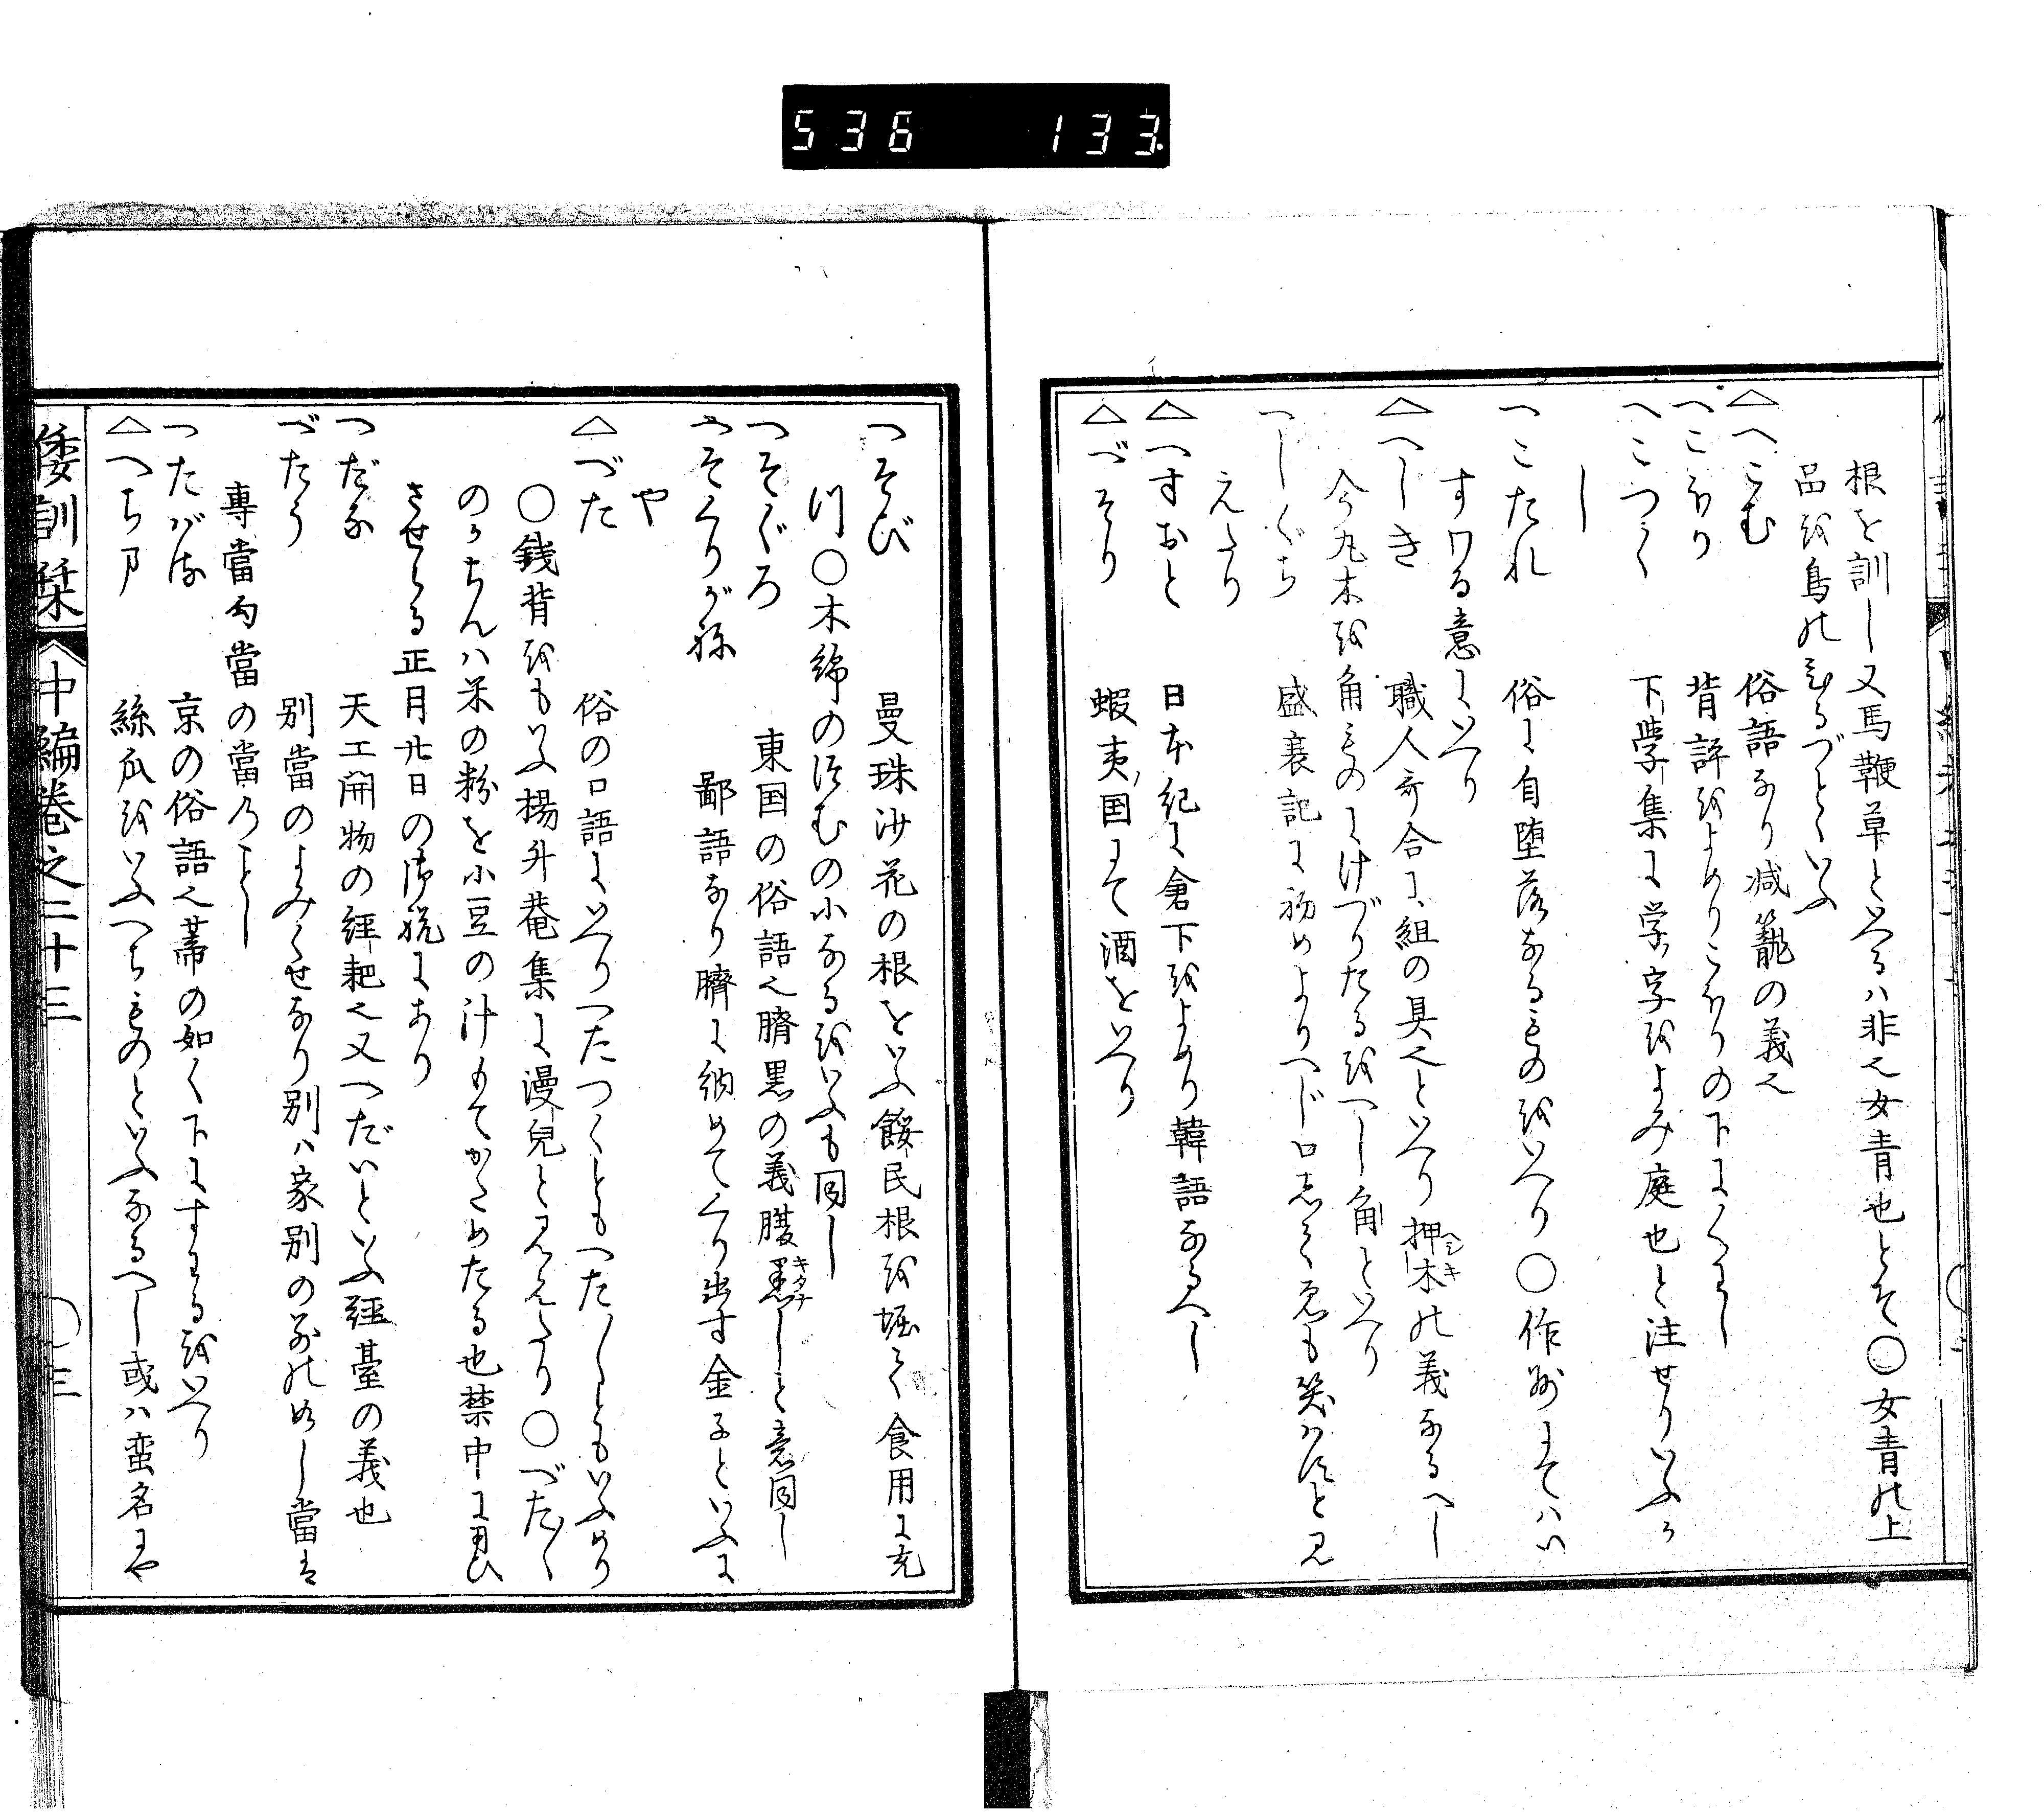 536 133
根を訓し又馬鞭草といへるハ非也女青也とそ〇女青の上
品を鳥のむるづとくいふ
△へこむ 俗語なり減籠の義也
へこほり 背評をよめりこほりの下にくはし
へこつく 下學集に学字をよみ庭也と注せりいふか
し
へこたれ 俗に自堕落なるものをいへり〇作州にてハい
すわる意にいへり
△へしき 職人哥合に組の具也といへり押木の義なるへし
ヘシキ
今丸木を角ものにけづりたるをへし角といへり
へしぐち 盛衰記に初めよりへじ口して咲も笑はすと見
えたり
△へすおと 日本紀に倉下をよめり韓語なるへし
△べそり 蝦夷国にて酒をいへり
へそび 曼珠沙花の根をいふ餒民根を堀て食用に充
つ〇木綿のつむの小なるをいふも同し
へそぐろ 東国の俗語也臍黒の義腹悪しと意同し
キタナ
へそくりがね 鄙語なり臍に納めてくり出す金子といふに
や
△べた 俗の口語にいへりへたつくともへた〳〵ともいふめり
〇銭背をもいふ楊升菴集に漫兒と見えたり〇べた〳〵
のかちんハ米の粉を小豆の汁もてかためたる也禁中に用ひ
させらる正月廿日の御祝にあり
へだな 天工開物の経耙也又へだいといふ経臺の義也
べたう 別當のよみくせなり別ハ家別の別の如し當は
專當勾當の當のことし
へたばる 京の俗語也蔕の如く下にすわるをいへり
△へちま 絲瓜をいふへちものといふなるへし或ハ蛮名にや
倭訓栞 中編巻之二十三 〇三